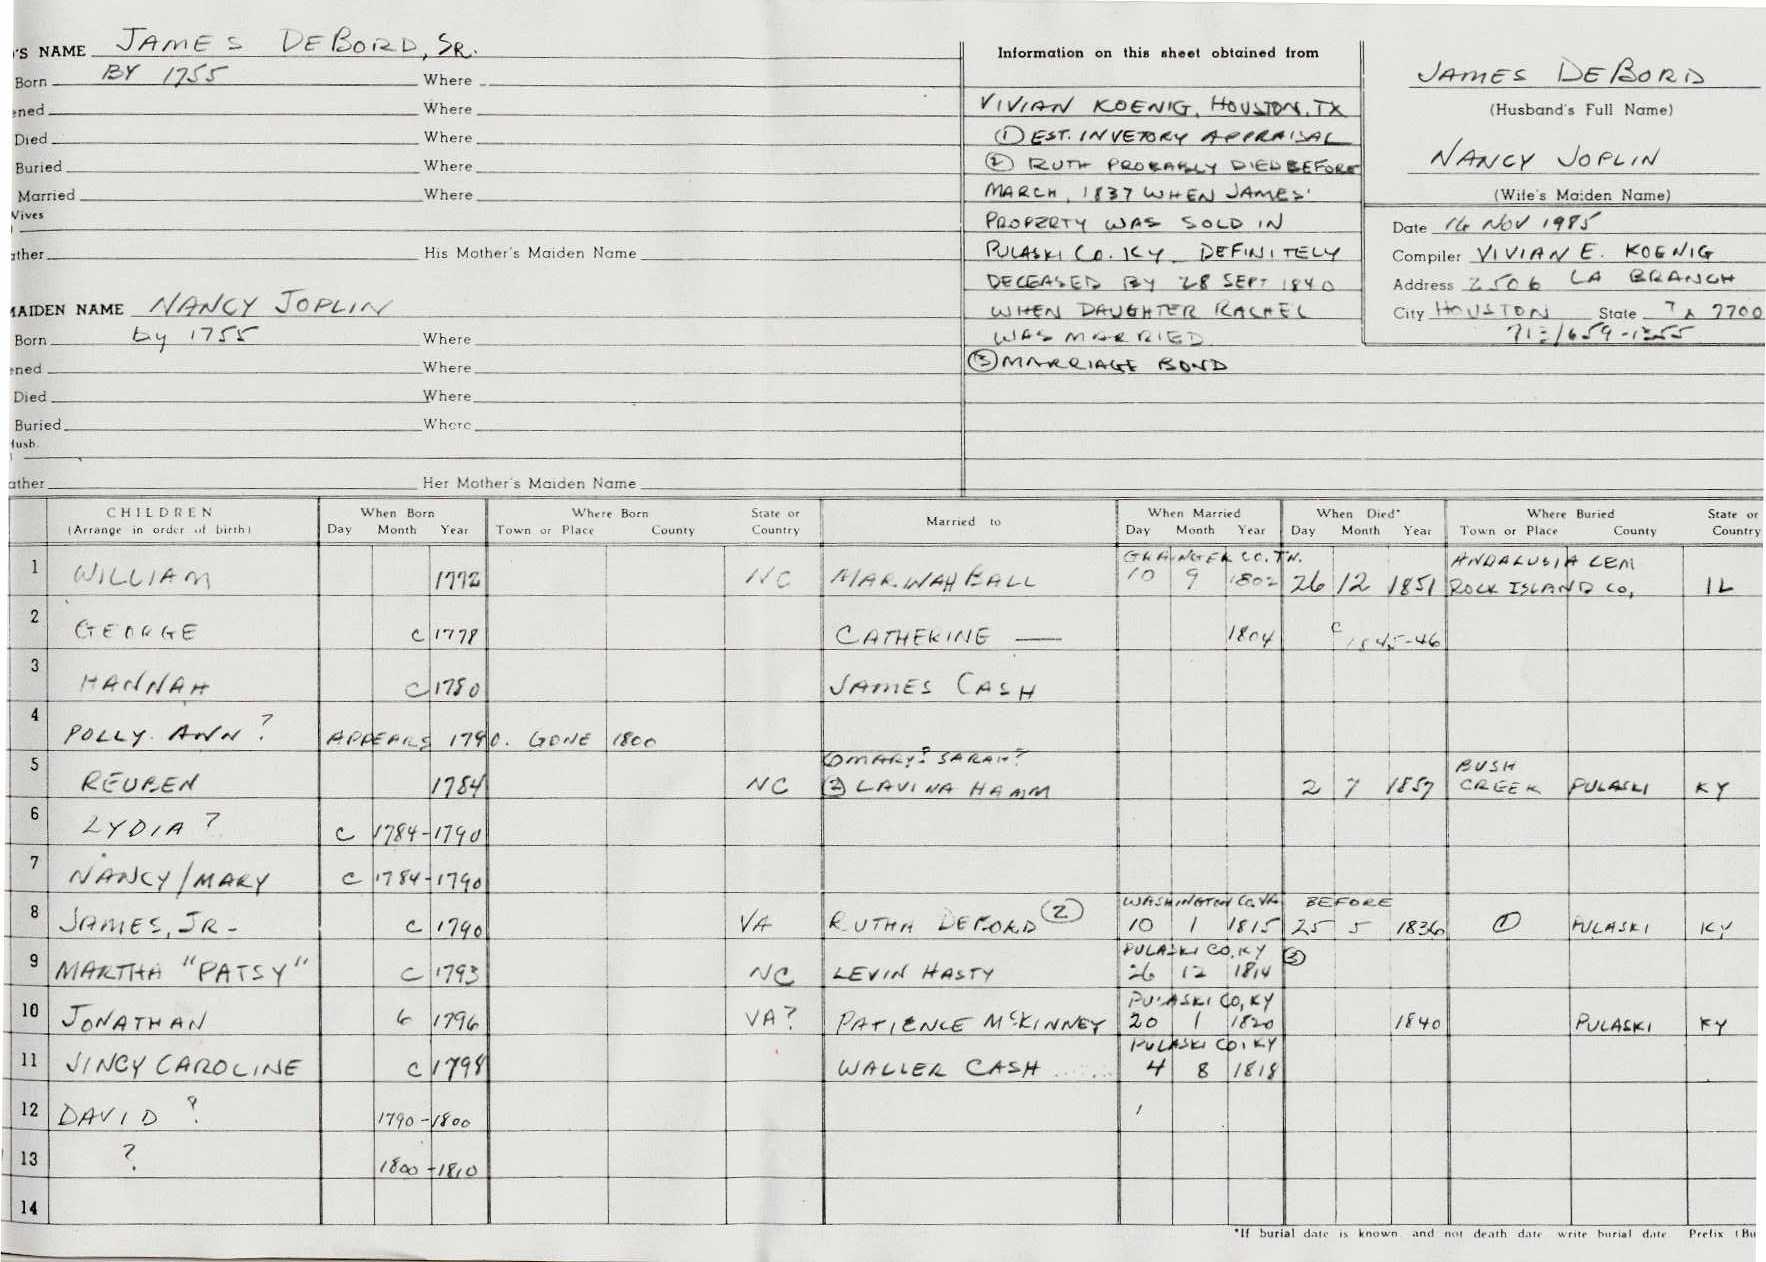 'S NAME JAMES DEBORD, SR.
Born BY 1755 Where
ened Where
Died Where
Buried Where
Married Where
Wives
ather His Mother's Maiden Name
MAIDEN NAME NANCY JOPLIN
Born by 1755 Where
ened Where
Died Where
Buried Where
Husb.
ather Her Mother's Maiden Name
Information on this sheet obtained from
VIVIAN KOENIG, HOUSTON, TX
① EST. INVETORY APPRAISAL
② RUTH PROBABLY DIED BEFORE
MARCH, 1837 WHEN JAMES'
PROPERTY WAS SOLD IN
PULASKI CO. KY. DEFINITELY
DECEASED BY 28 SEPT 1840
WHEN DAUGHTER RACHEL
WAS MARRIED
③ MARRIAGE BOND
JAMES DEBORD
(Husband's Full Name)
NANCY JOPLIN
(Wife's Maiden Name)
Date 14 NOV 1985
Compiler VIVIAN E. KOENIG
Address 2506 LA BRANCH
City HOUSTON State 7700
CHILDREN When Born Where Born State or Married to When Married When Died* Where Buried State or
(Arrange in order of birth) Day Month Year Town or Place County Country Day Month Year Day Month Year Town or Place County Country
GRAINGER CO. TN. ANDALUSIA CEM
1 WILLIAM 1772 NC 10 9 1802 26 12 1851 ROCK ISLAND CO, IL
2 GEORGE C 1778 CATHERINE — 1804 C 1845-46
3 HANNAH C 1780 JAMES CASH
4 POLLY ANN ? APPEARS 1790. GONE 1800
① MARY? SARAH? BUSH
5 REUBEN 1784 NC ② LAVINA HAMM 2 7 1857 CREEK PULASKI KY
6 LYDIA ? C 1784-1790
7 NANCY/MARY C 1784-1790
WASHINGTON CO. VA BEFORE
8 JAMES, JR- C 1790 VA RUTHA DEBORD ② 10 1 1815 25 5 1836 ① PULASKI KY
PULASKI CO, KY ③
9 MARTHA "PATSY" C 1793 NC LEVIN HASTY 26 12 1814
PULASKI CO, KY
10 JONATHAN 1796 VA? PATIENCE McKINNEY 20 1 1820 1840 PULASKI KY
PULASKI CO, KY
11 JINCY CAROLINE C 1798 WALLER CASH 4 8 1818
12 DAVID ? 1790-1800
13 ? 1800-1810
14
*If burial date is known and not death date write burial date. Prefix (Bu